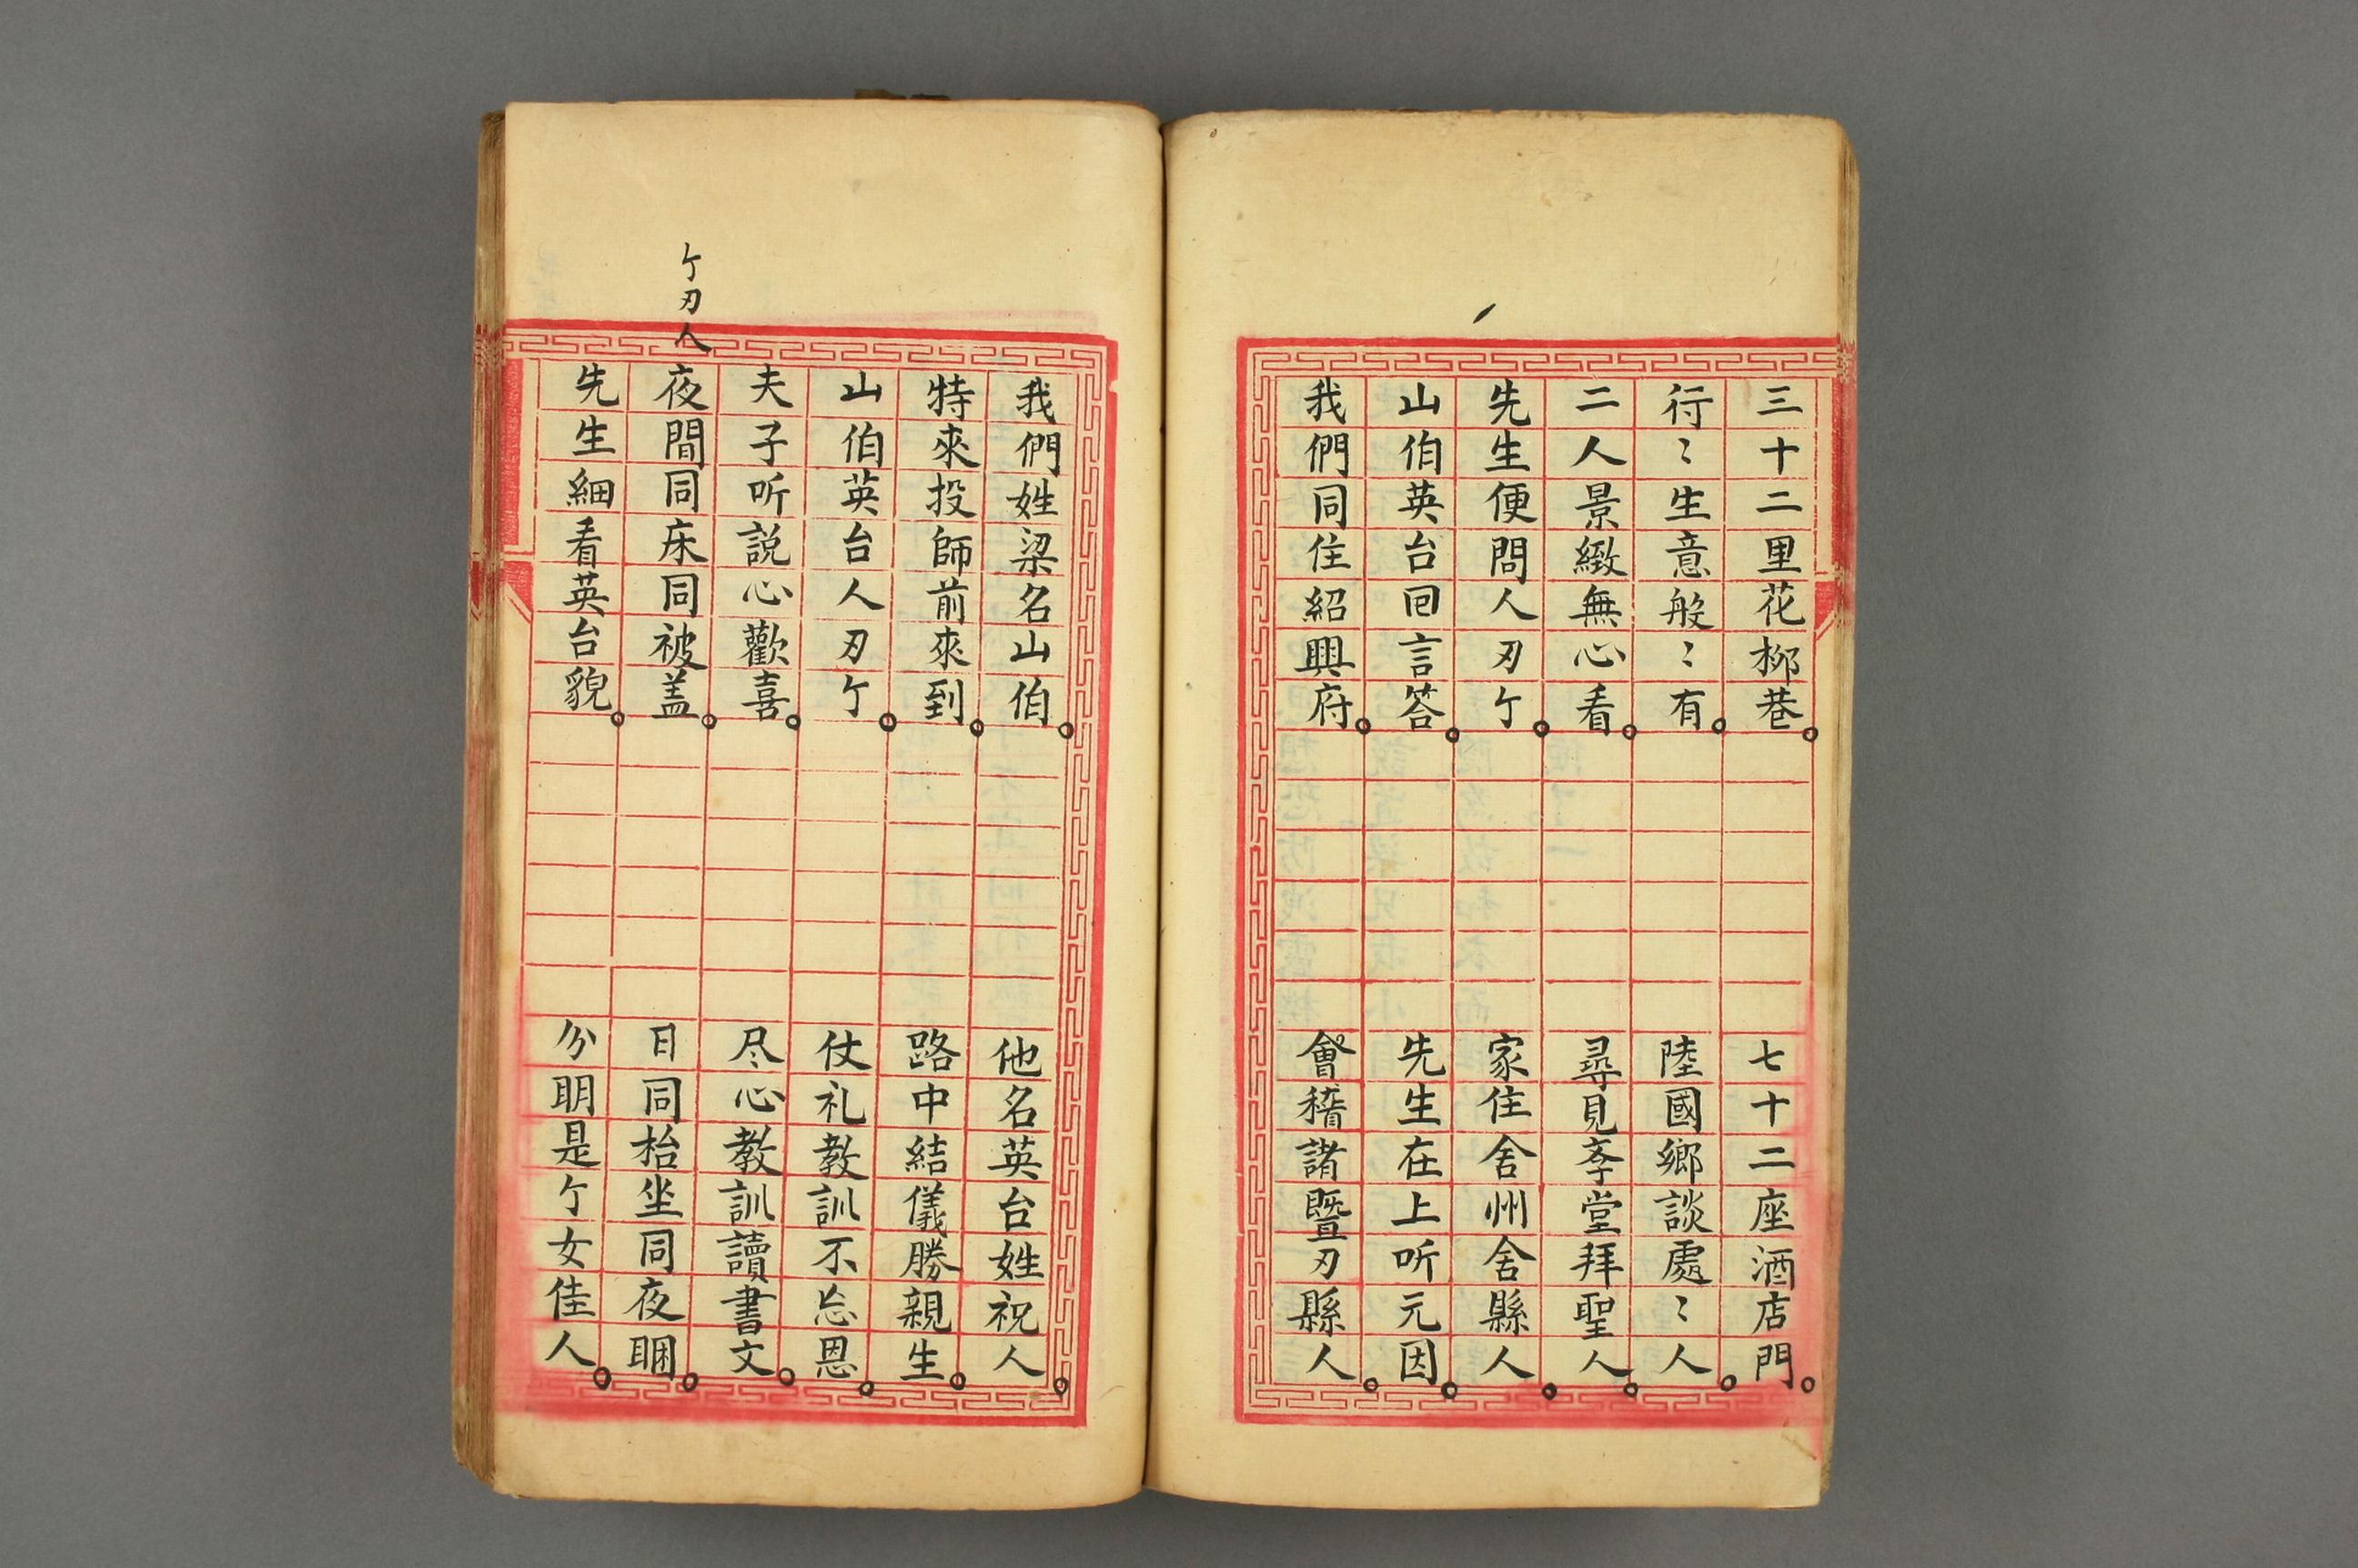 三十二里花柳巷。七十二座酒店門。
行〻生意般〻有。陸國鄉談處〻人。
二人景緻無心看。尋見斈堂拜聖人。
先生便問人刃亇。家住舍州舍縣人。
山伯英台囘言答。先生在上听元因。
我們同住紹興府。會稽諸暨刃縣人。
我們姓梁名山伯。他名英台姓祝人。
特來投師前來到。路中結儀勝親生。
山伯英台人刃亇。仗礼教訓不忘恩。
夫子听説心歡喜。尽心教訓讀書文。
亇刃人
夜間同床同被盖。日同枱坐同夜睏。
先生細看英台貌。分明是亇女佳人。